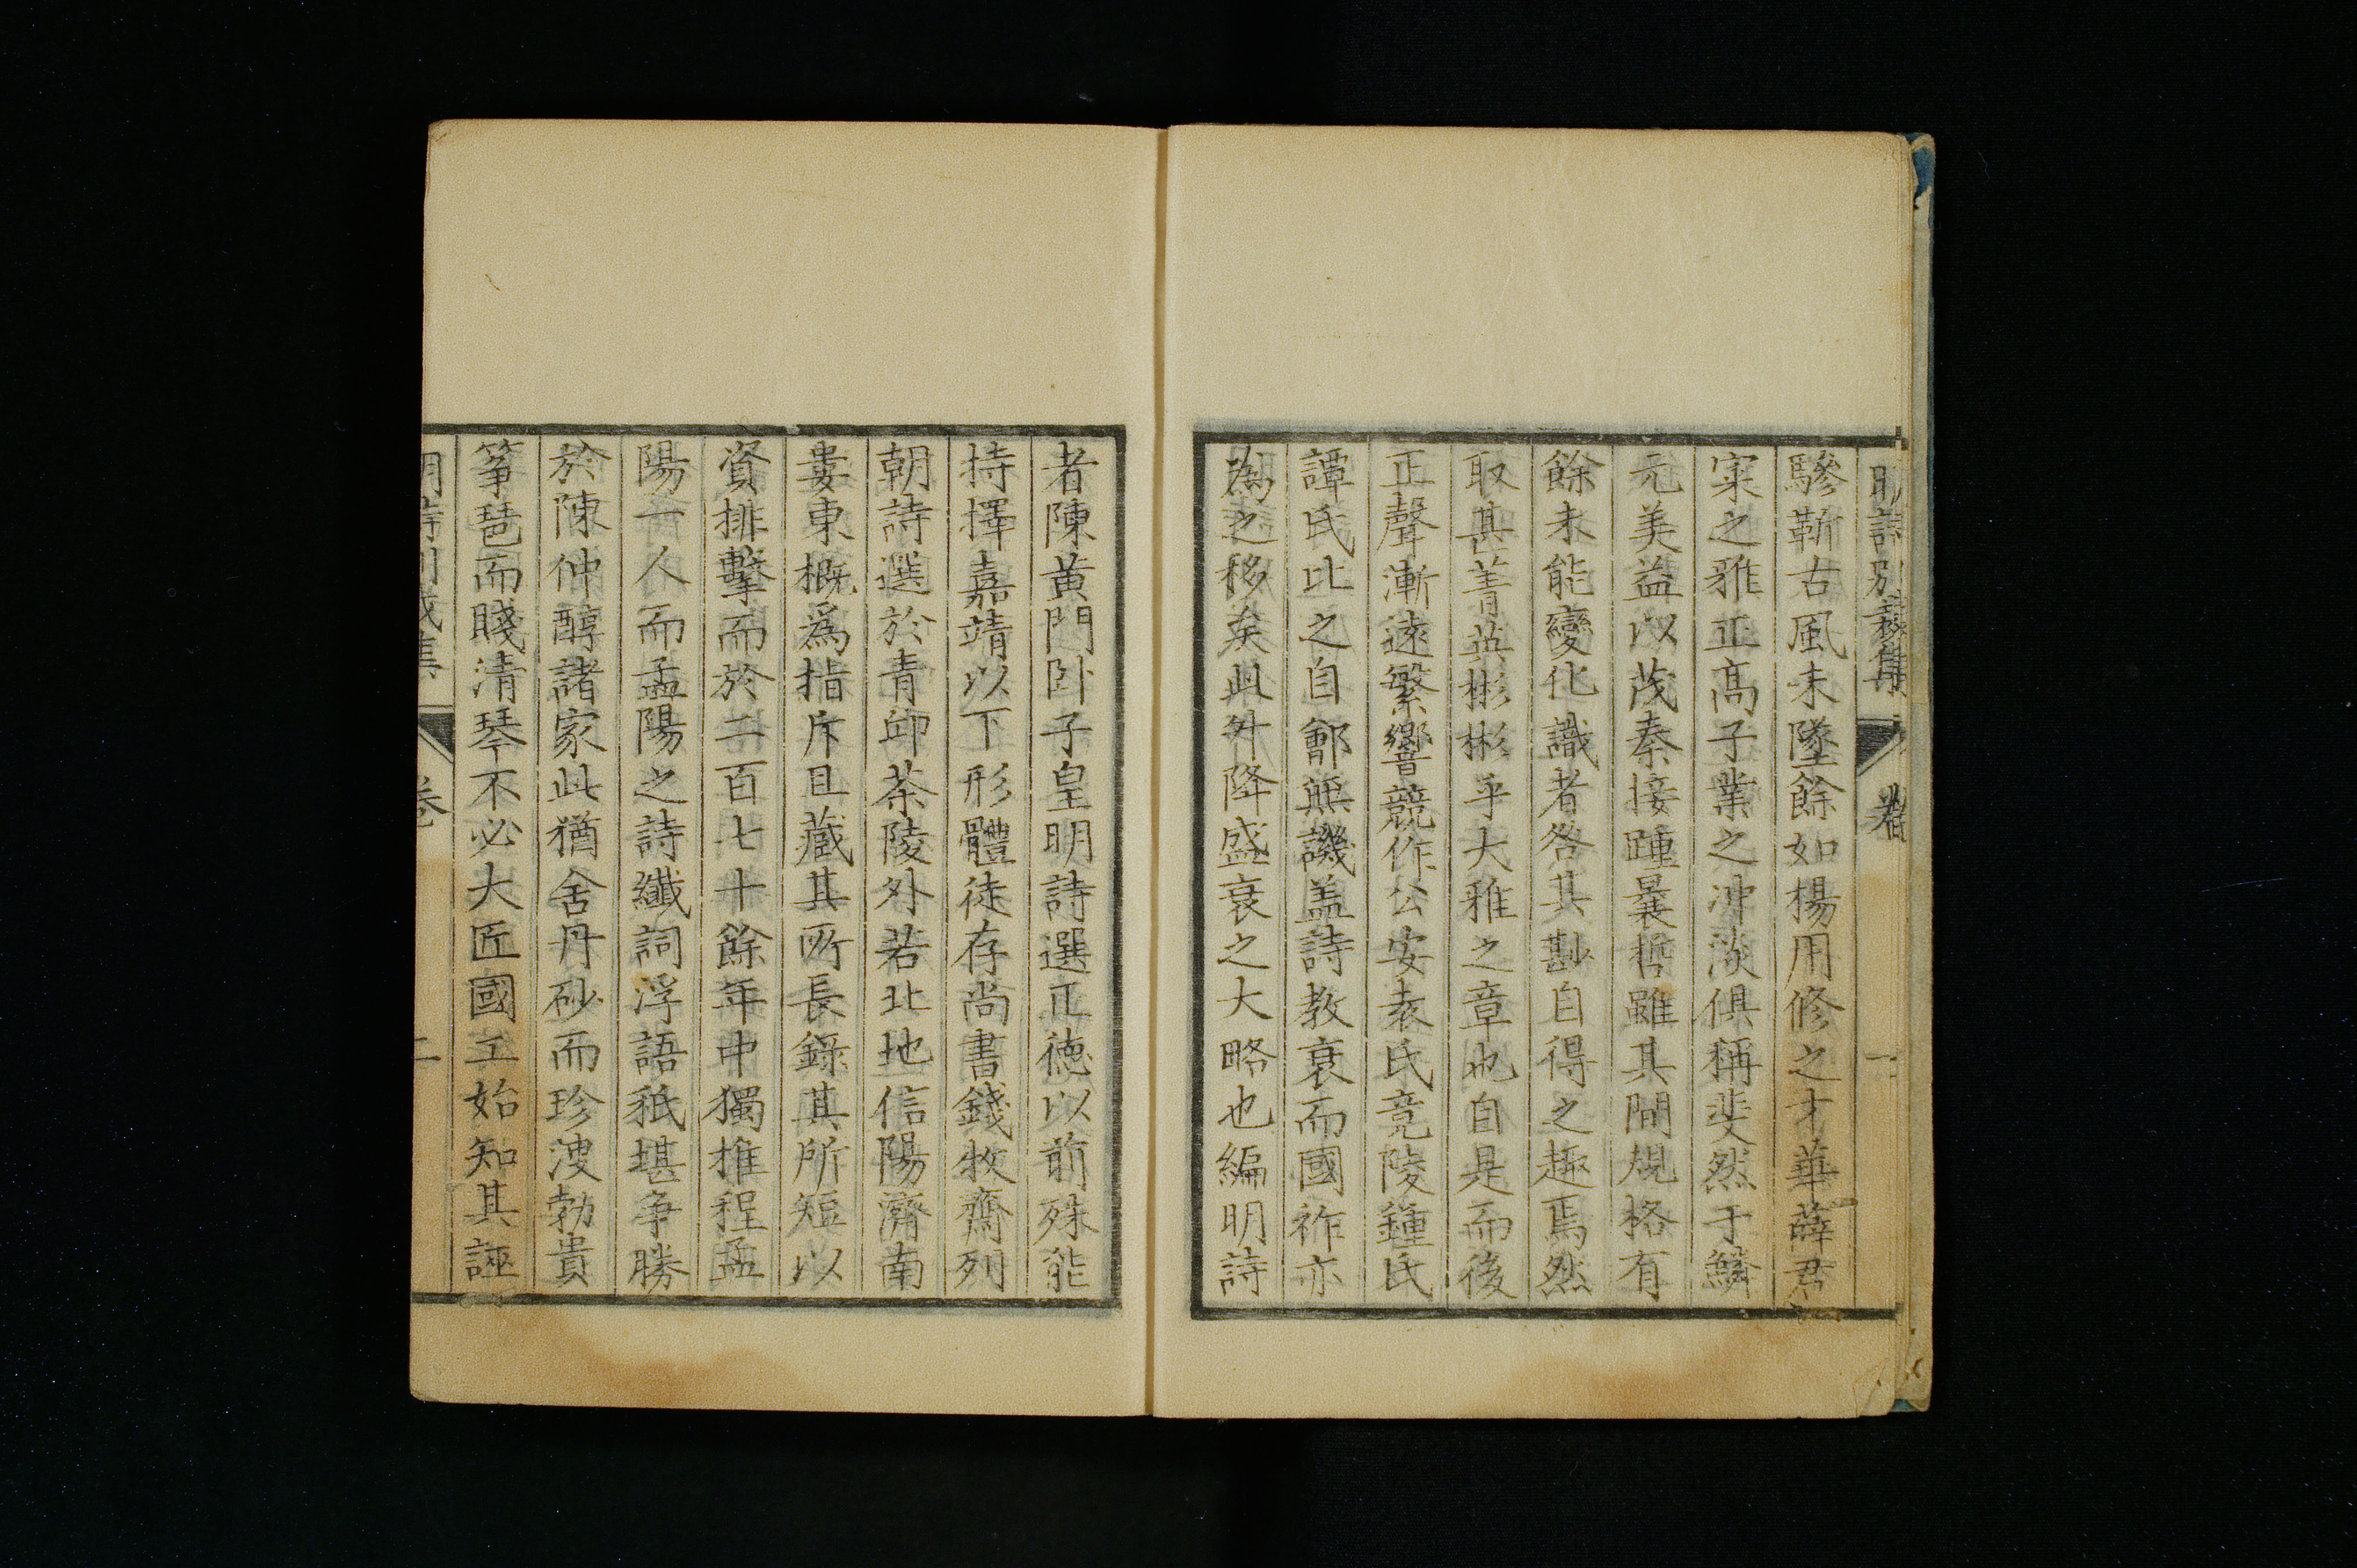 明詩別裁集 卷 一
驂靳古風未墜餘如楊用修之才華薛君
寀之雅正高子業之冲淡俱稱斐然于鱗
元美益以茂秦接踵曩哲雖其間規格有
餘未能變化識者咎其尠自得之趣焉然
取其菁英彬彬乎大雅之章也自是而後
正聲漸遠繁響競作公安袁氏竟陵鍾氏
譚氏比之自鄶無譏盖詩教衰而國祚亦
為之移矣此升降盛衰之大略也編明詩
者陳黄門卧子皇明詩選正徳以前殊能
持擇嘉靖以下形體徒存尚書錢牧齋列
朝詩選於青邱茶陵外若北地信陽濟南
婁東概爲指斥且藏其所長錄其所短以
資排擊而於二百七十餘年中獨推程孟
陽一人而孟陽之詩纖詞浮語秖堪争勝
於陳仲醇諸家此猶舍丹砂而珍溲勃貴
筝琶而賤清琴不必大匠國工始知其誣
明詩別裁集 卷 二